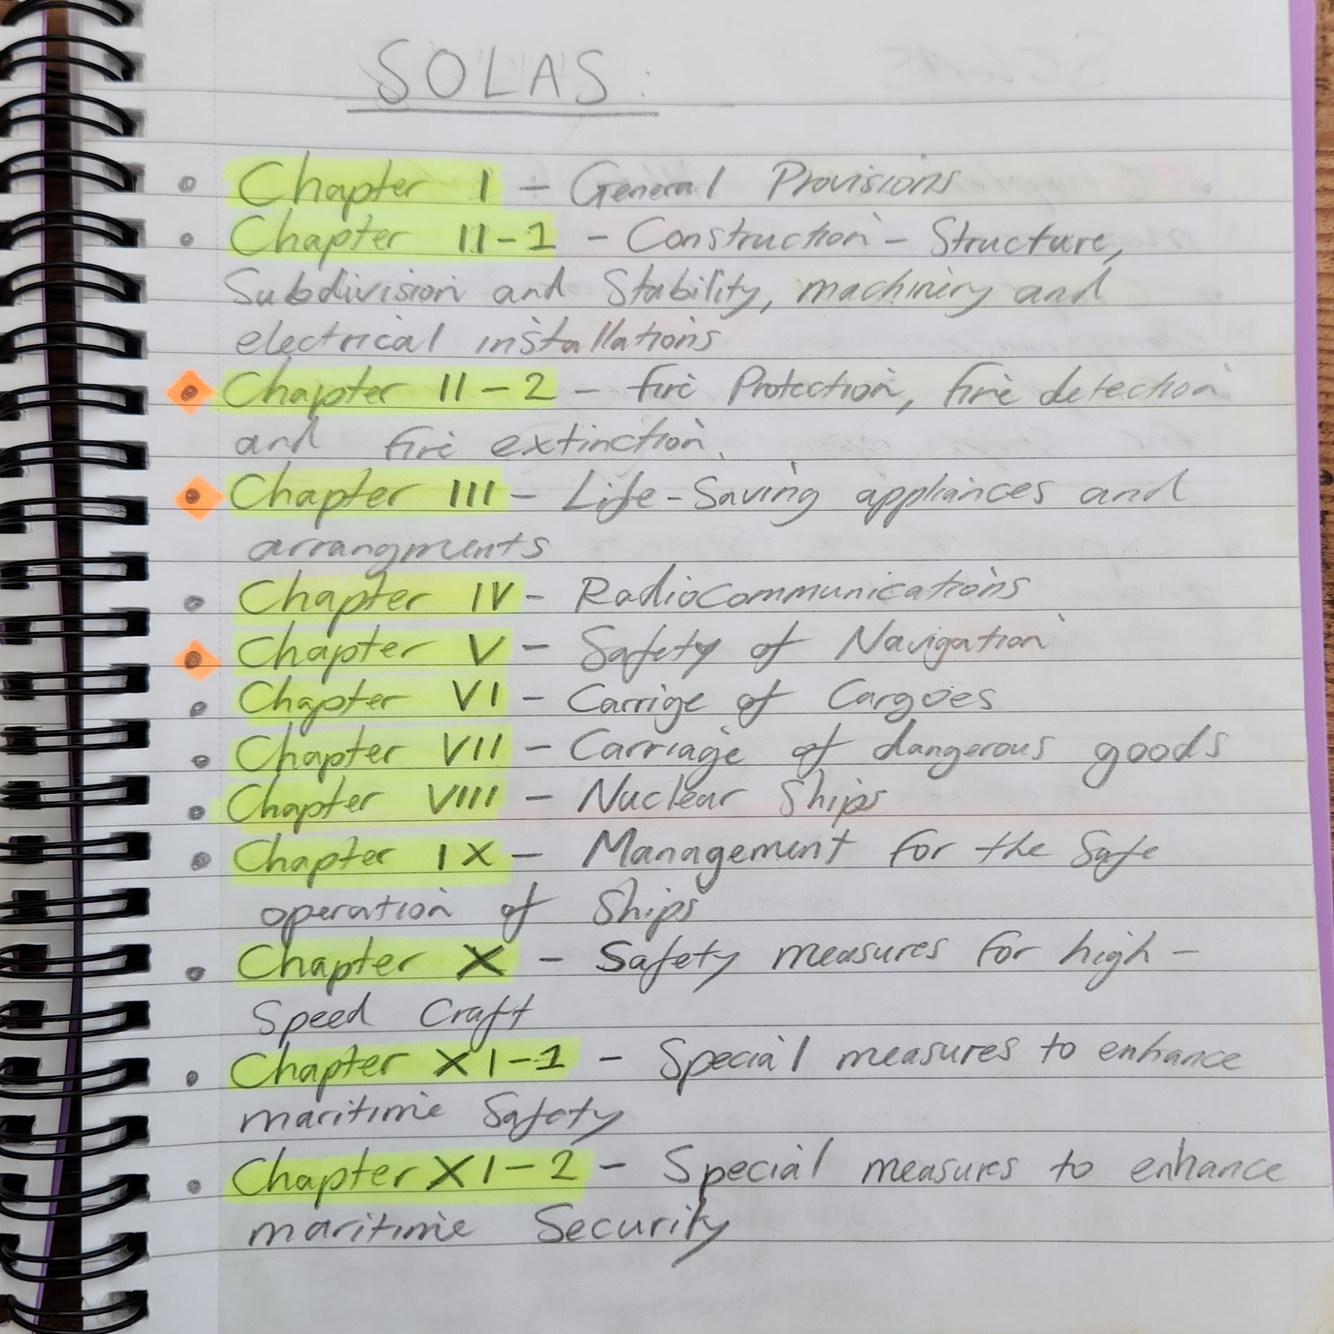 SOLAS:
• Chapter I - General Provisions
• Chapter II-1 - Construction - Structure,
Subdivision and Stability, machinery and
electrical installations
• Chapter II-2 - fire Protection, fire detection
and fire extinction.
• Chapter III - Life-Saving appliances and
arrangments
• Chapter IV - Radiocommunications
• Chapter V - Safety of Navigation
• Chapter VI - Carrige of Cargoes
• Chapter VII - Carriage of dangerous goods
• Chapter VIII - Nuclear Ships
• Chapter IX - Management for the Safe
operation of Ships
• Chapter X - Safety measures for high-
Speed Craft
• Chapter XI-1 - Special measures to enhance
maritime Safety
• Chapter XI-2 - Special measures to enhance
maritime Security